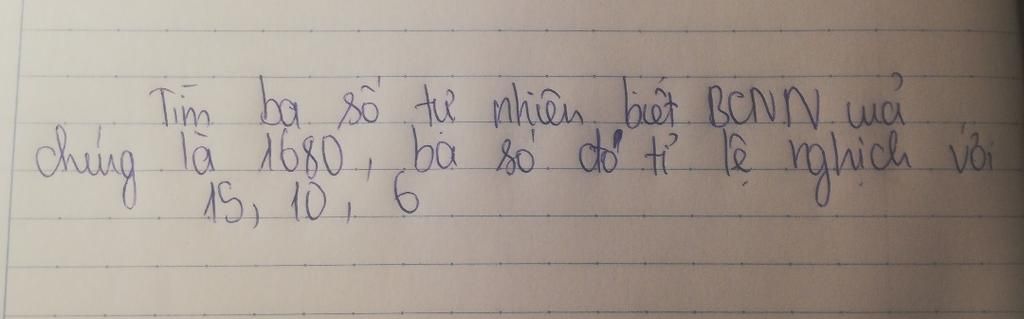 Tìm ba số tự nhiên biết BCNN của
chúng là 1680, ba số đó tỉ lệ nghịch với
15, 10, 6